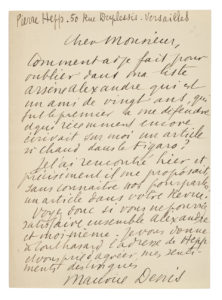 Pierre Hepp. 50 Rue Duplessis. Versailles
Cher Monsieur,
Comment ai-je fait pour
oublier dans ma liste
arsène alexandre qui est
un ami de vingt ans, qui
fut le premier à me défendre
et qui récemment encore
écrivait sur moi un article
si chaud dans le Figaro?
Je l'ai rencontré hier et
précisément il me proposait,
sans connaître nos pourparlers
un article dans votre Revue.
Voyez donc si vous ne pouvez
satisfaire ensemble alexandre
et moi-même. Je vous donne
à tout hasard l'adresse de Hepp
et vous prie d'agréer mes senti-
ments distingués
Maurice Denis